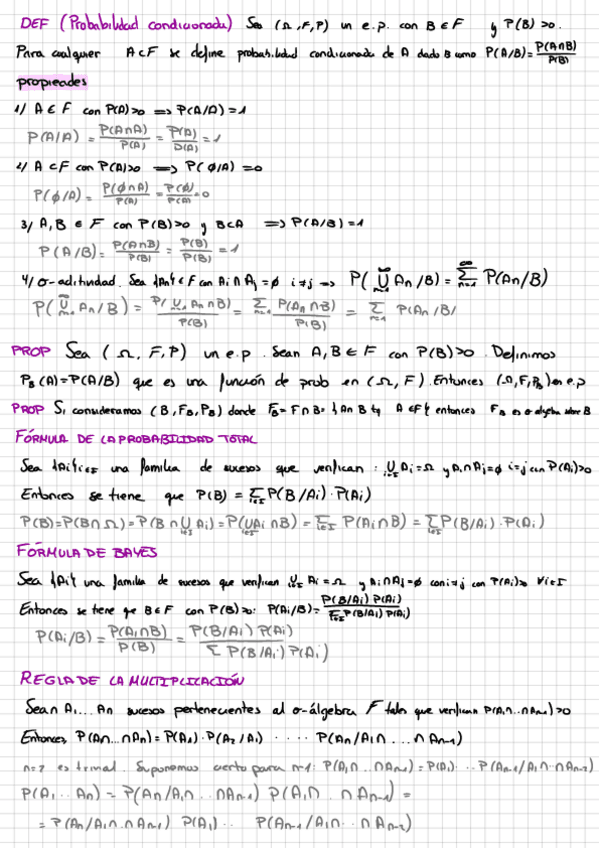 DEF (Probabilidad condicionada) Sea (Ω, F, P) un e.p. con B ∈ F y P(B) > 0.
Para cualquier A ⊂ F se define probabilidad condicionada de A dado B como P(A/B) = P(A∩B)/P(B)
propiedades
1/ A ∈ F con P(A)>0 ⟹ P(A/A) = 1
P(A/A) = P(A∩A)/P(A) = P(A)/P(A) = 1
2/ A ⊂ F con P(A)>0 ⟹ P(∅/A) = 0
P(∅/A) = P(∅∩A)/P(A) = P(∅)/P(A) = 0
3/ A, B ∈ F con P(B)>0 y B⊂A ⟹ P(A/B) = 1
P(A/B) = P(A∩B)/P(B) = P(B)/P(B) = 1
4/ σ-aditividad. Sea {An} ∈ F con Ai∩Aj = ∅ i≠j ⟹ P(⋃_{n=1}^∞ An/B) = Σ_{n=1}^∞ P(An/B)
P(⋃_{n=1}^∞ An/B) = P(⋃_{n=1} An∩B)/P(B) = Σ_{n=1} P(An∩B)/P(B) = Σ_{n=1} P(An/B)
PROP Sea (Ω, F, P) un e.p. Sean A, B ∈ F con P(B)>0. Definimos
P_B(A) = P(A/B) que es una función de prob en (Ω, F). Entonces (Ω, F, P_B) en e.p
PROP Si consideramos (B, F_B, P_B) donde F_B = F∩B = {A∩B tq A ∈ F} entonces F_B es σ-algebra sobre B
FÓRMULA DE LA PROBABILIDAD TOTAL
Sea {Ai}_{i∈I} una familia de sucesos que verifican: ⋃_{i∈I} Ai = Ω y Ai∩Aj = ∅ i≠j con P(Ai)>0
Entonces se tiene que P(B) = Σ_{i∈I} P(B/Ai)·P(Ai)
P(B) = P(B∩Ω) = P(B∩⋃_{i∈I} Ai) = P(⋃_{i∈I} Ai∩B) = Σ_{i∈I} P(Ai∩B) = Σ_{i∈I} P(B/Ai)·P(Ai)
FÓRMULA DE BAYES
Sea {Ai} una familia de sucesos que verifican ⋃_{i∈I} Ai = Ω y Ai∩Aj = ∅ con i≠j con P(Ai)>0 ∀i∈I
Entonces se tiene qe B∈F con P(B)>0: P(Ai/B) = P(B/Ai) P(Ai)/Σ_{i∈I} P(B/Ai) P(Ai)
P(Ai/B) = P(Ai∩B)/P(B) = P(B/Ai) P(Ai)/Σ P(B/Ai) P(Ai)
REGLA DE LA MULTIPLICACIÓN
Sean A1....An sucesos pertenecientes al σ-álgebra F tales que verifican P(A1∩...∩An-1)>0
Entonces, P(A1∩...∩An) = P(A1)·P(A2/A1) ····· P(An/A1∩...∩An-1)
n=2 es trivial. Suponemos cierto para n-1: P(A1∩...∩An-1) = P(A1)··· P(An-1/A1∩··∩An-2)
P(A1...An) = P(An/A1∩...∩An-1) P(A1∩..∩An-1) =
= P(An/A1∩..∩An-1) P(A1)... P(An-1/A1∩··∩An-2)